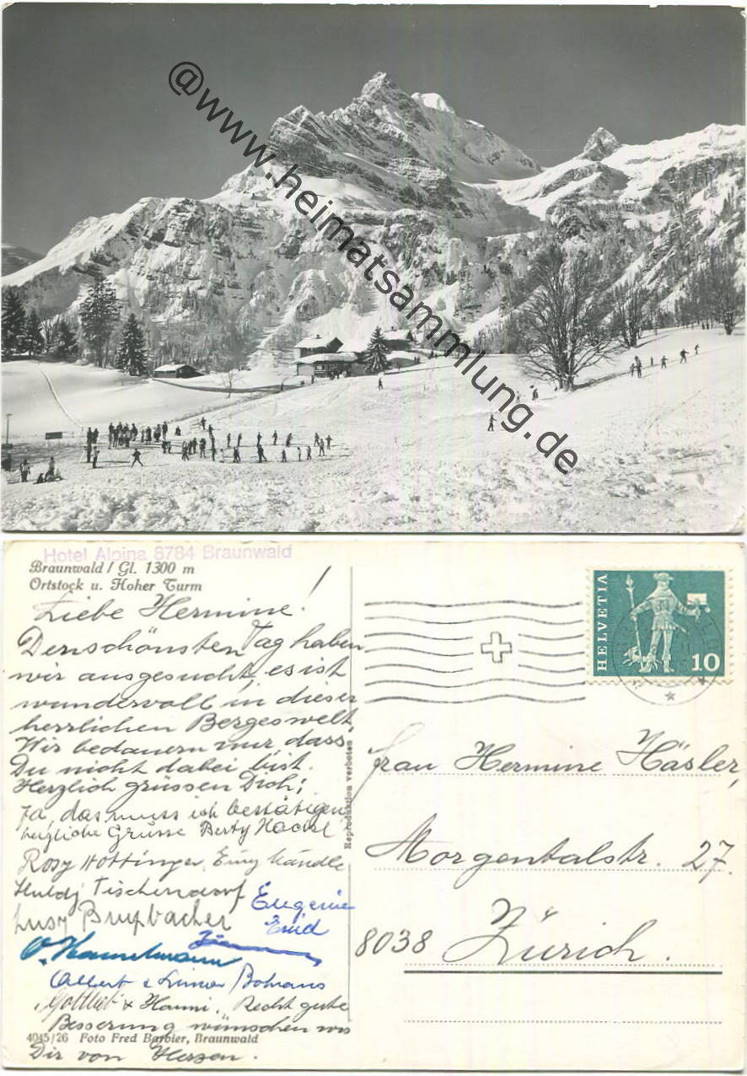 @www.heimatsammlung.de
Hotel Alpina 8784 Braunwald
Braunwald / Gl. 1300 m
Ortstock u. Hoher Turm
Liebe Hermine!
Den schönsten Tag haben
wir ausgesucht, es ist
wundervoll in dieser
herrlichen Bergeswelt
Wir bedauern nur, dass
Du nicht dabei bist.
Herzlich grüssen Dich;
Ja, das muss ich bestätigen
herzliche Grüsse Berty
Rosy Hottinger,
Tischendorf Eugenie
Lusy
Albert
Gottlieb & Hanni. Recht gute
Besserung wünschen wir
Dir von Herzen.
4045/26 Foto Fred Barbier, Braunwald
Reproduktion verboten
HELVETIA
10
Frau Hermine Häsler,
Morgentalstr. 27.
8038 Zürich.